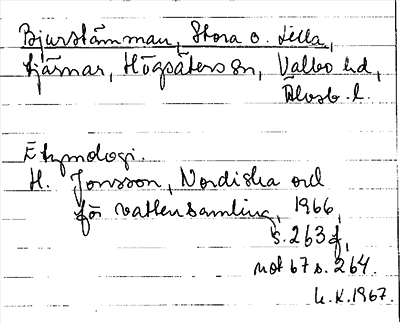 Bjurstämman, Stora o. Lilla,
tjärnar, Högsäters sn, Valbo hd,
Älvsb. l.
Etymologi.
H. Jonsson, Nordiska ord
för vattensamling, 1966,
s. 263 f,
not 67 s. 264.
L. K. 1967.